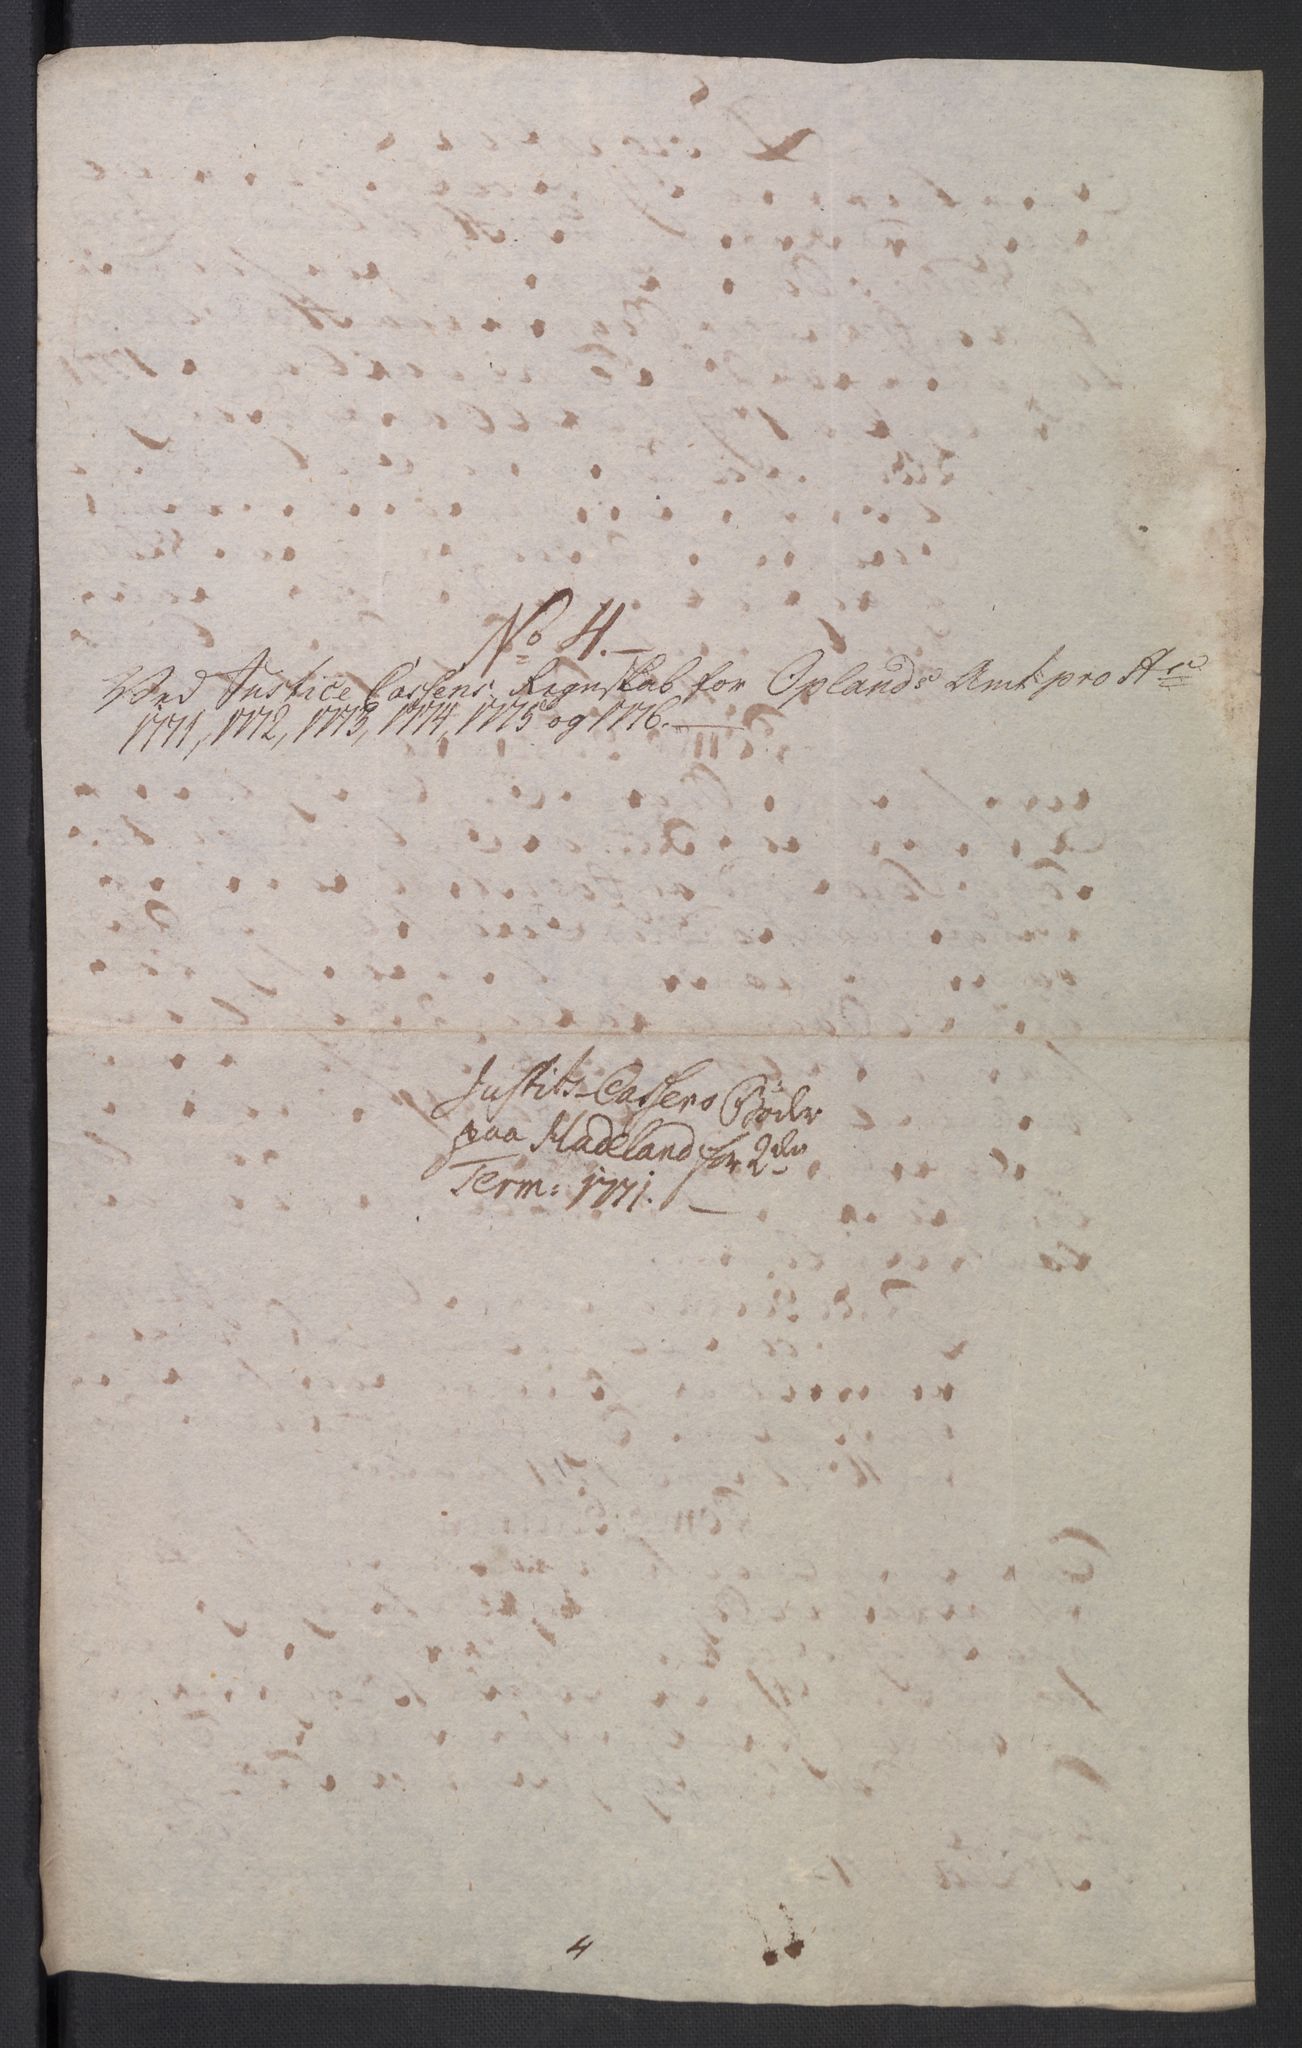 No 4.
Ved Justice Cassens Regnskab for Oplands Amt pro Ao
1771, 1772, 1773, 1774, 1775 og 1776.
Justits-Cassens Bøder
paa Hadeland for 2den
Term: 1771.
4